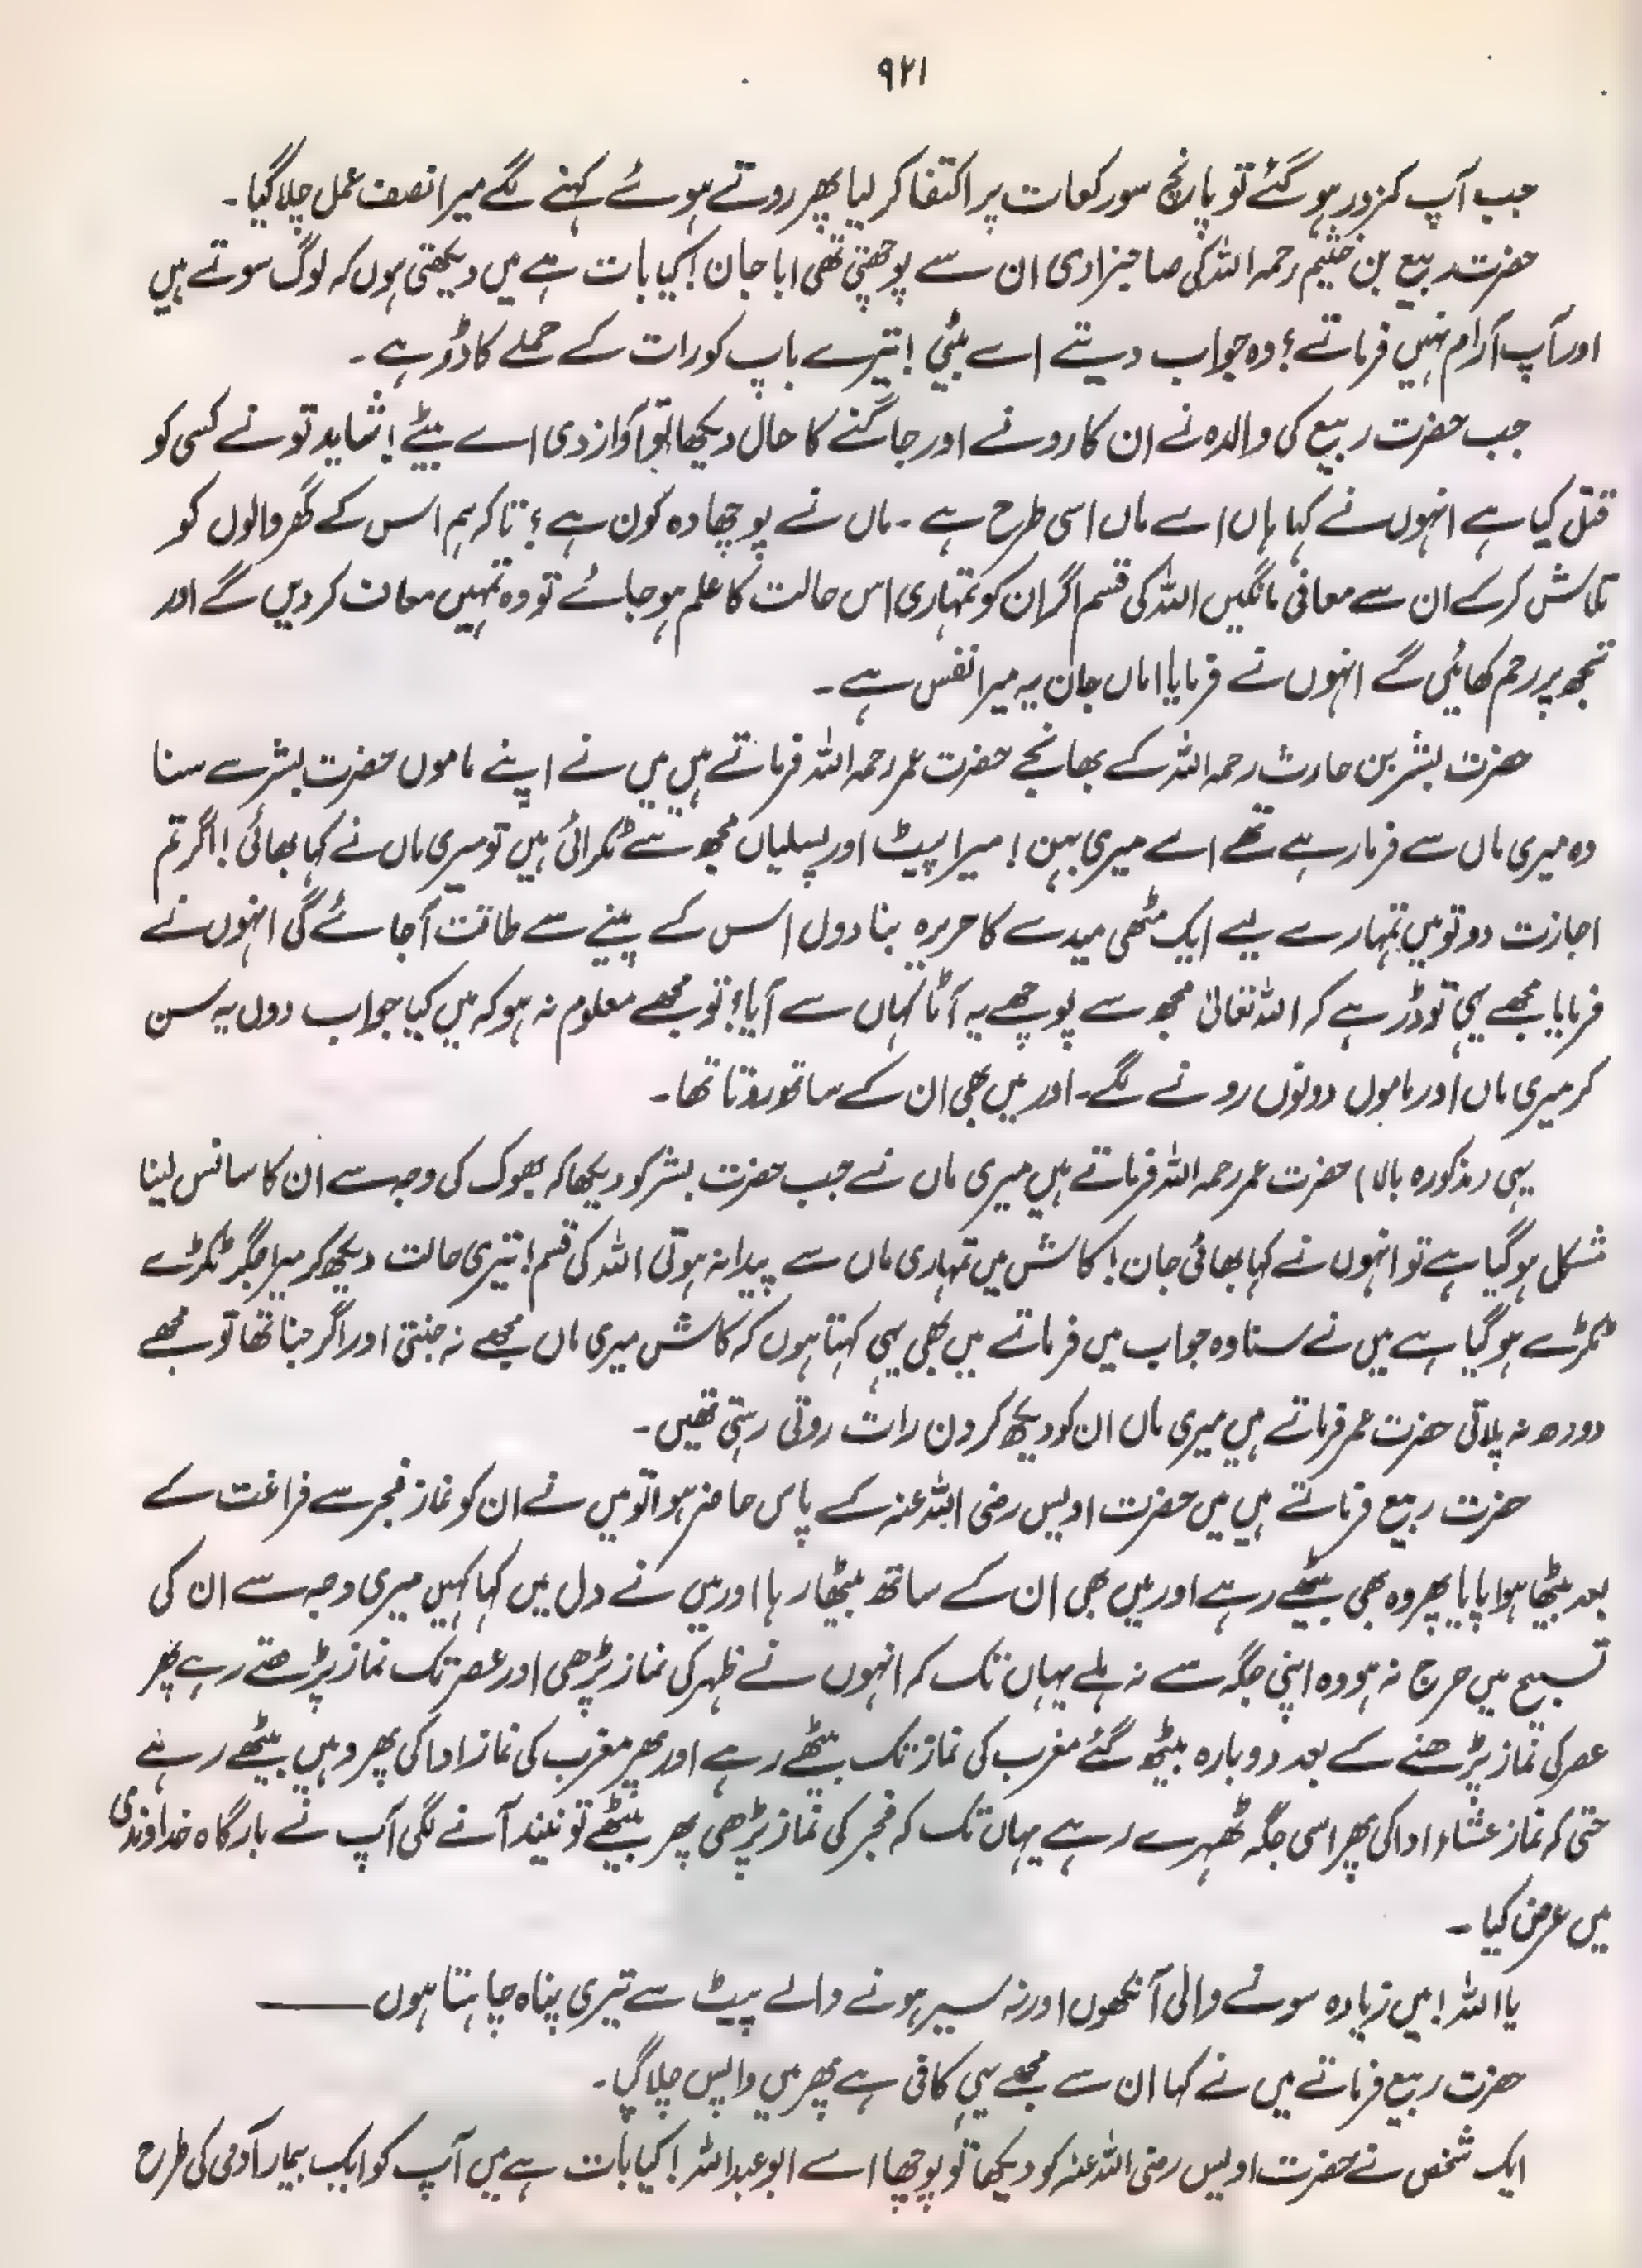 ۹۲۱
جب آپ کمزور ہو گئے تو پانچ سو رکعات پر اکتفا کر لیا پھر روتے ہوئے کہنے لگے میرا نصف عمل چلا گیا۔
حضرت ربیع بن خثیم رحمہ اللہ کی صاحبزادی ان سے پوچھتی تھی ابا جان! کیا بات ہے میں دیکھتی ہوں کہ لوگ سوتے ہیں
اور آپ آرام نہیں فرماتے؟ وہ جواب دیتے اے بیٹی! تیرے باپ کو رات کے حملے کا ڈر ہے۔
جب حضرت ربیع کی والدہ نے ان کا رونے اور جاگنے کا حال دیکھا تو آواز دی اے بیٹے! شاید تو نے کسی کو
قتل کیا ہے انہوں نے کہا ہاں اے ماں اسی طرح ہے۔ ماں نے پوچھا وہ کون ہے؟ تاکہ ہم اس کے گھر والوں کو
تلاش کرکے ان سے معافی مانگیں اللہ کی قسم اگر ان کو تمہاری اس حالت کا علم ہو جائے تو وہ تمہیں معاف کر دیں گے اور
تجھ پر رحم کھائیں گے انہوں نے فرمایا اماں جان یہ میرا نفس ہے۔
حضرت بشر بن حارث رحمہ اللہ کے بھانجے حضرت عمر رحمہ اللہ فرماتے ہیں میں نے اپنے ماموں حضرت بشر سے سنا
وہ میری ماں سے فرما رہے تھے اے میری بہن! میرا پیٹ اور پسلیاں مجھ سے ٹکرائی ہیں تو میری ماں نے کہا بھائی! اگر تم
اجازت دو تو میں تمہارے لیے ایک مٹھی میدے کا حریرہ بنا دوں اس کے پینے سے طاقت آ جائے گی انہوں نے
فرمایا مجھے یہی تو ڈر ہے کہ اللہ تعالیٰ مجھ سے پوچھے یہ آٹا کہاں سے آیا؟ تو مجھے معلوم نہ ہو کہ میں کیا جواب دوں یہ سن
کر میری ماں اور ماموں دونوں رونے لگے۔ اور میں بھی ان کے ساتھ روتا تھا۔
یہی (مذکورہ بالا) حضرت عمر رحمہ اللہ فرماتے ہیں میری ماں نے جب حضرت بشر کو دیکھا کہ بھوک کی وجہ سے ان کا سانس لینا
مشکل ہو گیا ہے تو انہوں نے کہا بھائی جان! کاش میں تمہاری ماں سے پیدا نہ ہوتی اللہ کی قسم! تیری حالت دیکھ کر میرا جگر ٹکڑے
ٹکڑے ہو گیا ہے میں نے سنا وہ جواب میں فرماتے میں بھی یہی کہتا ہوں کہ کاش میری ماں مجھے نہ جنتی اور اگر جنا تھا تو مجھے
دودھ نہ پلاتی حضرت عمر فرماتے ہیں میری ماں ان کو دیکھ کر دن رات روتی رہتی تھیں۔
حضرت ربیع فرماتے ہیں میں حضرت اویس رضی اللہ عنہ کے پاس حاضر ہوا تو میں نے ان کو نماز فجر سے فراغت کے
بعد بیٹھا ہوا پایا پھر وہ بھی بیٹھے رہے اور میں بھی ان کے ساتھ بیٹھا رہا اور میں نے دل میں کہا کہیں میری وجہ سے ان کی
تسبیح میں حرج نہ ہو وہ اپنی جگہ سے نہ ہلے یہاں تک کہ انہوں نے ظہر کی نماز پڑھی اور عصر تک نماز پڑھتے رہے پھر
عصر کی نماز پڑھنے کے بعد دوبارہ بیٹھ گئے مغرب کی نماز تک بیٹھے رہے اور پھر مغرب کی نماز ادا کی پھر وہیں بیٹھے رہے
حتی کہ نماز عشاء ادا کی پھر اسی جگہ ٹھہرے رہے یہاں تک کہ فجر کی نماز پڑھی پھر بیٹھے تو نیند آنے لگی آپ نے بارگاہ خداوندی
میں عرض کیا۔
یا اللہ! میں زیادہ سونے والی آنکھوں اور نہ سیر ہونے والے پیٹ سے تیری پناہ چاہتا ہوں ——
حضرت ربیع فرماتے میں نے کہا ان سے مجھے یہی کافی ہے پھر میں واپس چلا گیا۔
ایک شخص نے حضرت اویس رضی اللہ عنہ کو دیکھا تو پوچھا اے ابو عبداللہ! کیا بات ہے میں آپ کو ایک بیمار آدمی کی طرح